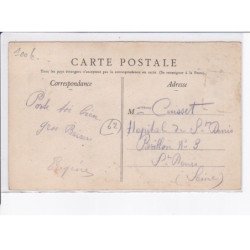 CARTE POSTALE
Tous les pays étrangers n'acceptent pas la correspondance au recto. (Se renseigner à la Poste)
Correspondance
Adresse
Porte toi bien
gros Baiser
Eugène
62
M Cousset
Hopital de St Denis
Pavillon N° 3
St Denis
(Seine)